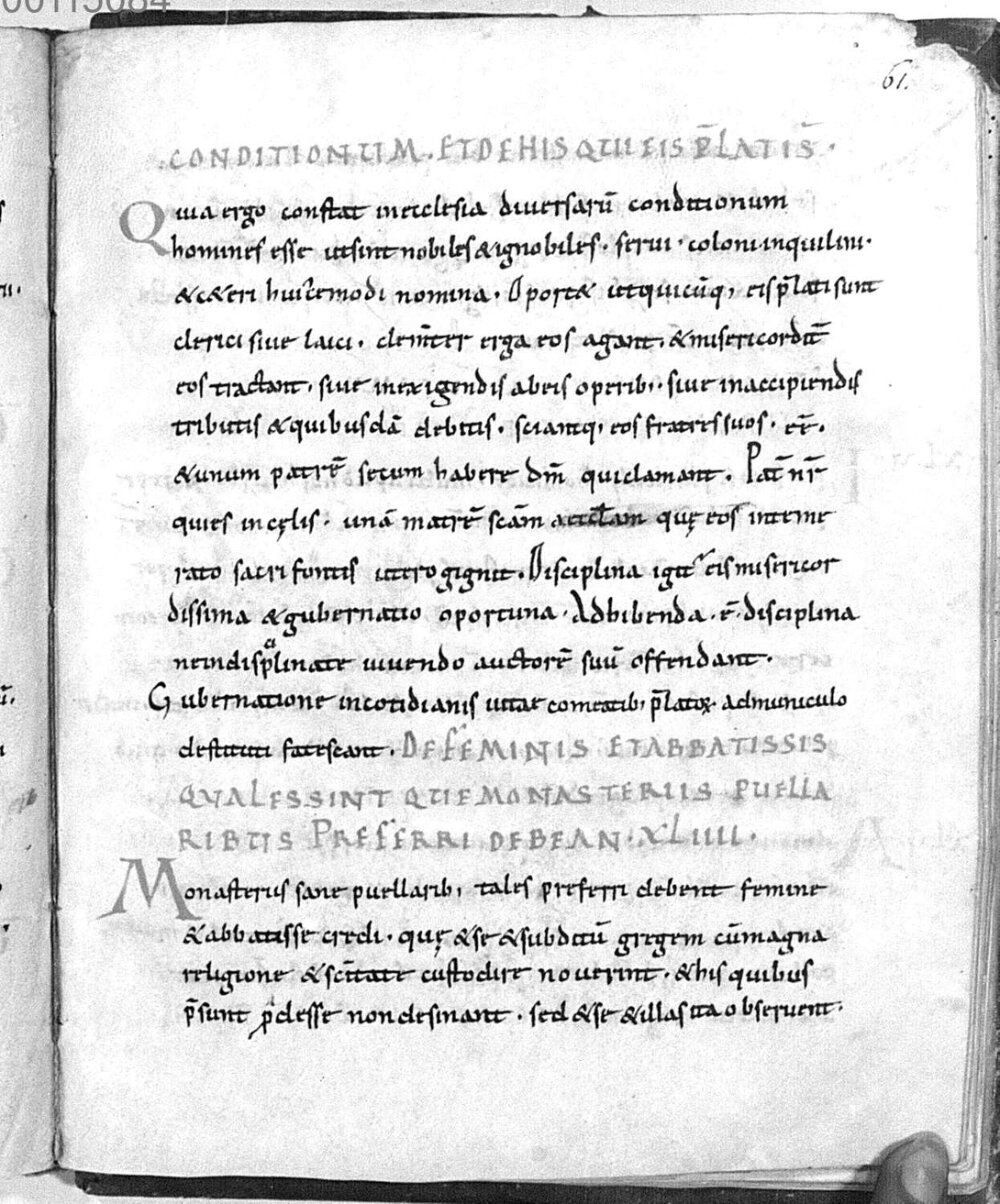 00115084
61.
.CONDITIONUM. ET DE HIS QUI EIS P̄LATI S̄.
Quia ergo constat in ecclesia diversarū conditionum
homines esse ut sint nobiles & ignobiles. servi. coloni inquilini.
& c&eri huiꝰcemodi nomina. Oport& ut quicūq; eis p̄lati sunt
clerici sive laici. clem̄ter erga eos agant. & misericordit̄
eos tractant. sive in exigendis ab eis operib; sive in accipiendis
tributis & quibusdā debitis. sciantq; eos fratres suos. eē.
& unum patrē secum habere dm̄ qui clamant. Pat̄ nr̄
qui es in cęlis. unā matrē scām ęcclam quę eos inteme
rato sacri fontis utero gignit. Disciplina igit᷑ eis misericor
dissima & gubernatio oportuna. Adhibenda. ē. disciplina
ne indisp̄linate vivendo auctorē suū offendant.
Gubernatione in cotidianis vitae comeatib; p̄latoꝝ adminiculo
destituti fatescant. DE FEMINIS ET ABBATISSIS
QUALES SINT QUE MONASTERIIS PUELLA
RIBUS PREFERRI DEBEAN. XLIIII.
Monasteriis sane puellarib; tales preferri debent femine
& abbatisse credi. quę & se & subditū gregem cū magna
religione & sc̄itate custodire noverint. & his quibus
p̄sunt p̄desse non desinant. sed & se & illas ita observent.